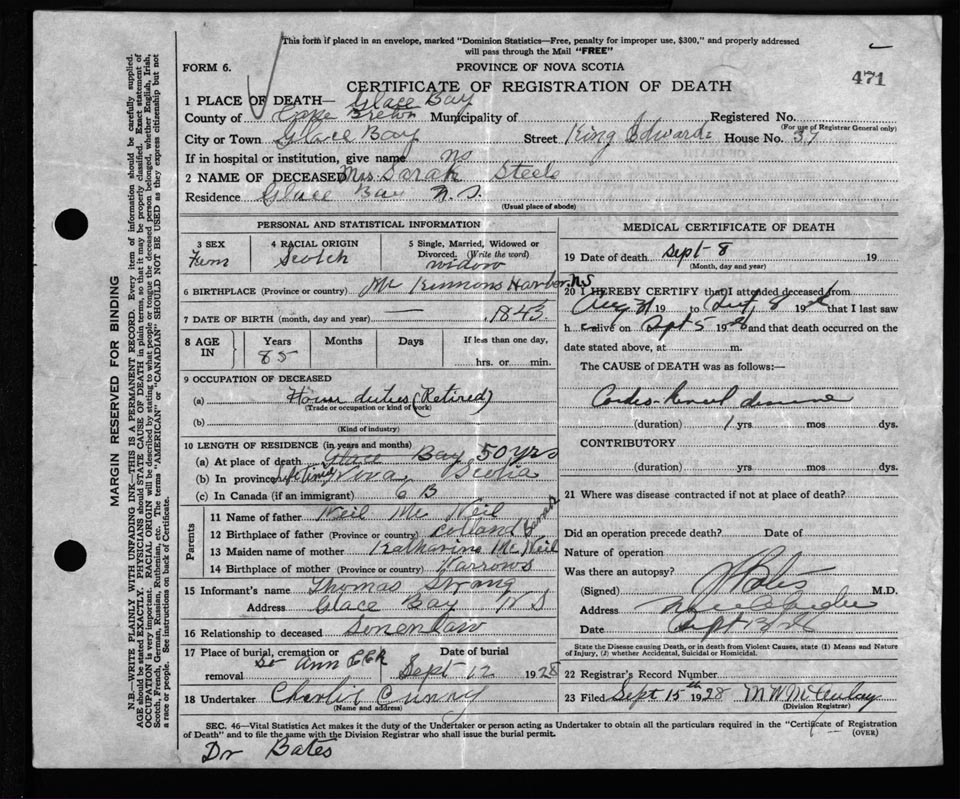 This form if placed in an envelope, marked "Dominion Statistics—Free, penalty for improper use, $300," and properly addressed
will pass through the Mail "FREE"
FORM 6.
PROVINCE OF NOVA SCOTIA
471
CERTIFICATE OF REGISTRATION OF DEATH
1 PLACE OF DEATH— Glace Bay
County of Cape Breton Municipality of Registered No.
(For use of Registrar General only)
City or Town Glace Bay Street King Edward House No. 37
If in hospital or institution, give name no
2 NAME OF DECEASED Mrs Sarah Steele
Residence Glace Bay N.S.
(Usual place of abode)
PERSONAL AND STATISTICAL INFORMATION
3 SEX Fem
4 RACIAL ORIGIN Scotch
5 Single, Married, Widowed or Divorced. (Write the word) widow
6 BIRTHPLACE (Province or country) Mc Kinnons Harbor N.S
7 DATE OF BIRTH (month, day and year) — 1843
8 AGE IN Years 85 Months Days If less than one day, hrs. or min.
9 OCCUPATION OF DECEASED
(a) House duties (Retired)
(Trade or occupation or kind of work)
(b)
(Kind of industry)
10 LENGTH OF RESIDENCE (in years and months)
(a) At place of death Glace Bay 50 yrs
(b) In province Life time Nova Scotia
(c) In Canada (if an immigrant) C B
Parents
11 Name of father Neil Mc Neil
12 Birthplace of father (Province or country)
13 Maiden name of mother Katharine Mc Neil
14 Birthplace of mother (Province or country) Narrows
15 Informant's name Thomas Strang
Address Glace Bay N S
16 Relationship to deceased Soninlaw
17 Place of burial, cremation or removal St Ann Date of burial Sept 12 1928
18 Undertaker Charlie Curry
(Name and address)
MEDICAL CERTIFICATE OF DEATH
19 Date of death Sept 8 19
(Month, day and year)
20 I HEREBY CERTIFY that I attended deceased from
Aug 31 19 to Sept 8 1928 that I last saw
h alive on Sept 5 1928 and that death occurred on the
date stated above, at m.
The CAUSE of DEATH was as follows:—
Cardio-Renal disease
(duration) 1 yrs. mos. dys.
CONTRIBUTORY
(duration) yrs. mos. dys.
21 Where was disease contracted if not at place of death?
Did an operation precede death? Date of
Nature of operation
Was there an autopsy?
(Signed) Bates M.D.
Address
Date Sept 13/28
State the Disease causing Death, or in death from Violent Causes, state (1) Means and Nature
of Injury, (2) whether Accidental, Suicidal or Homicidal.
22 Registrar's Record Number
23 Filed Sept 15th 1928
(Division Registrar)
SEC. 46—Vital Statistics Act makes it the duty of the Undertaker or person acting as Undertaker to obtain all the particulars required in the "Certificate of Registration
of Death" and to file the same with the Division Registrar who shall issue the burial permit.
(OVER)
Dr Bates
MARGIN RESERVED FOR BINDING
N.B.—WRITE PLAINLY WITH UNFADING INK—THIS IS A PERMANENT RECORD. Every item of information should be carefully supplied.
AGE should be stated EXACTLY. PHYSICIANS should STATE CAUSE OF DEATH in plain terms, so that it may be properly classified. Exact statement of
OCCUPATION is very important. RACIAL ORIGIN will be described by stating to what people or tongue the deceased person belonged, whether English, Irish,
Scotch, French, German, Russian, Ruthenian, etc. The terms "AMERICAN" or "CANADIAN" SHOULD NOT BE USED as they express citizenship but not
a race or people. See instructions on back of Certificate.